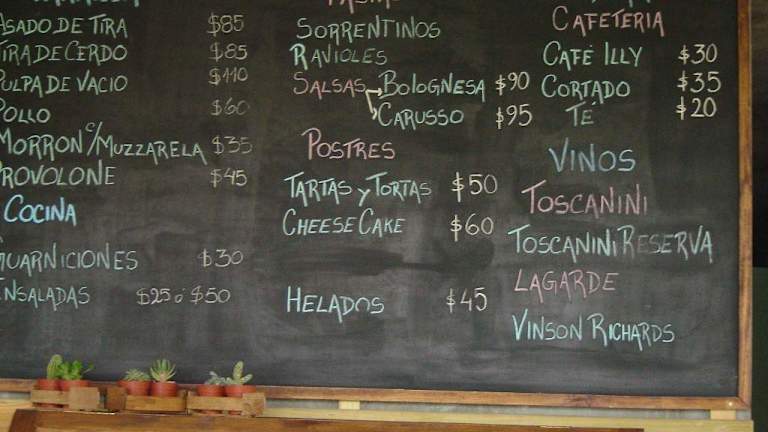 ASADO DE TIRA $85
TIRA DE CERDO $85
PULPA DE VACIO $110
POLLO $60
MORRON C/MUZZARELA $35
PROVOLONE $45
COCINA
GUARNICIONES $30
ENSALADAS $25 ó $50
SORRENTINOS
RAVIOLES
SALSAS → BOLOGNESA $90
CARUSSO $95
POSTRES
TARTAS Y TORTAS $50
CHEESE CAKE $60
HELADOS $45
CAFETERIA
CAFÉ ILLY $30
CORTADO $35
TÉ $20
VINOS
TOSCANINI
TOSCANINI RESERVA
LAGARDE
VINSON RICHARDS